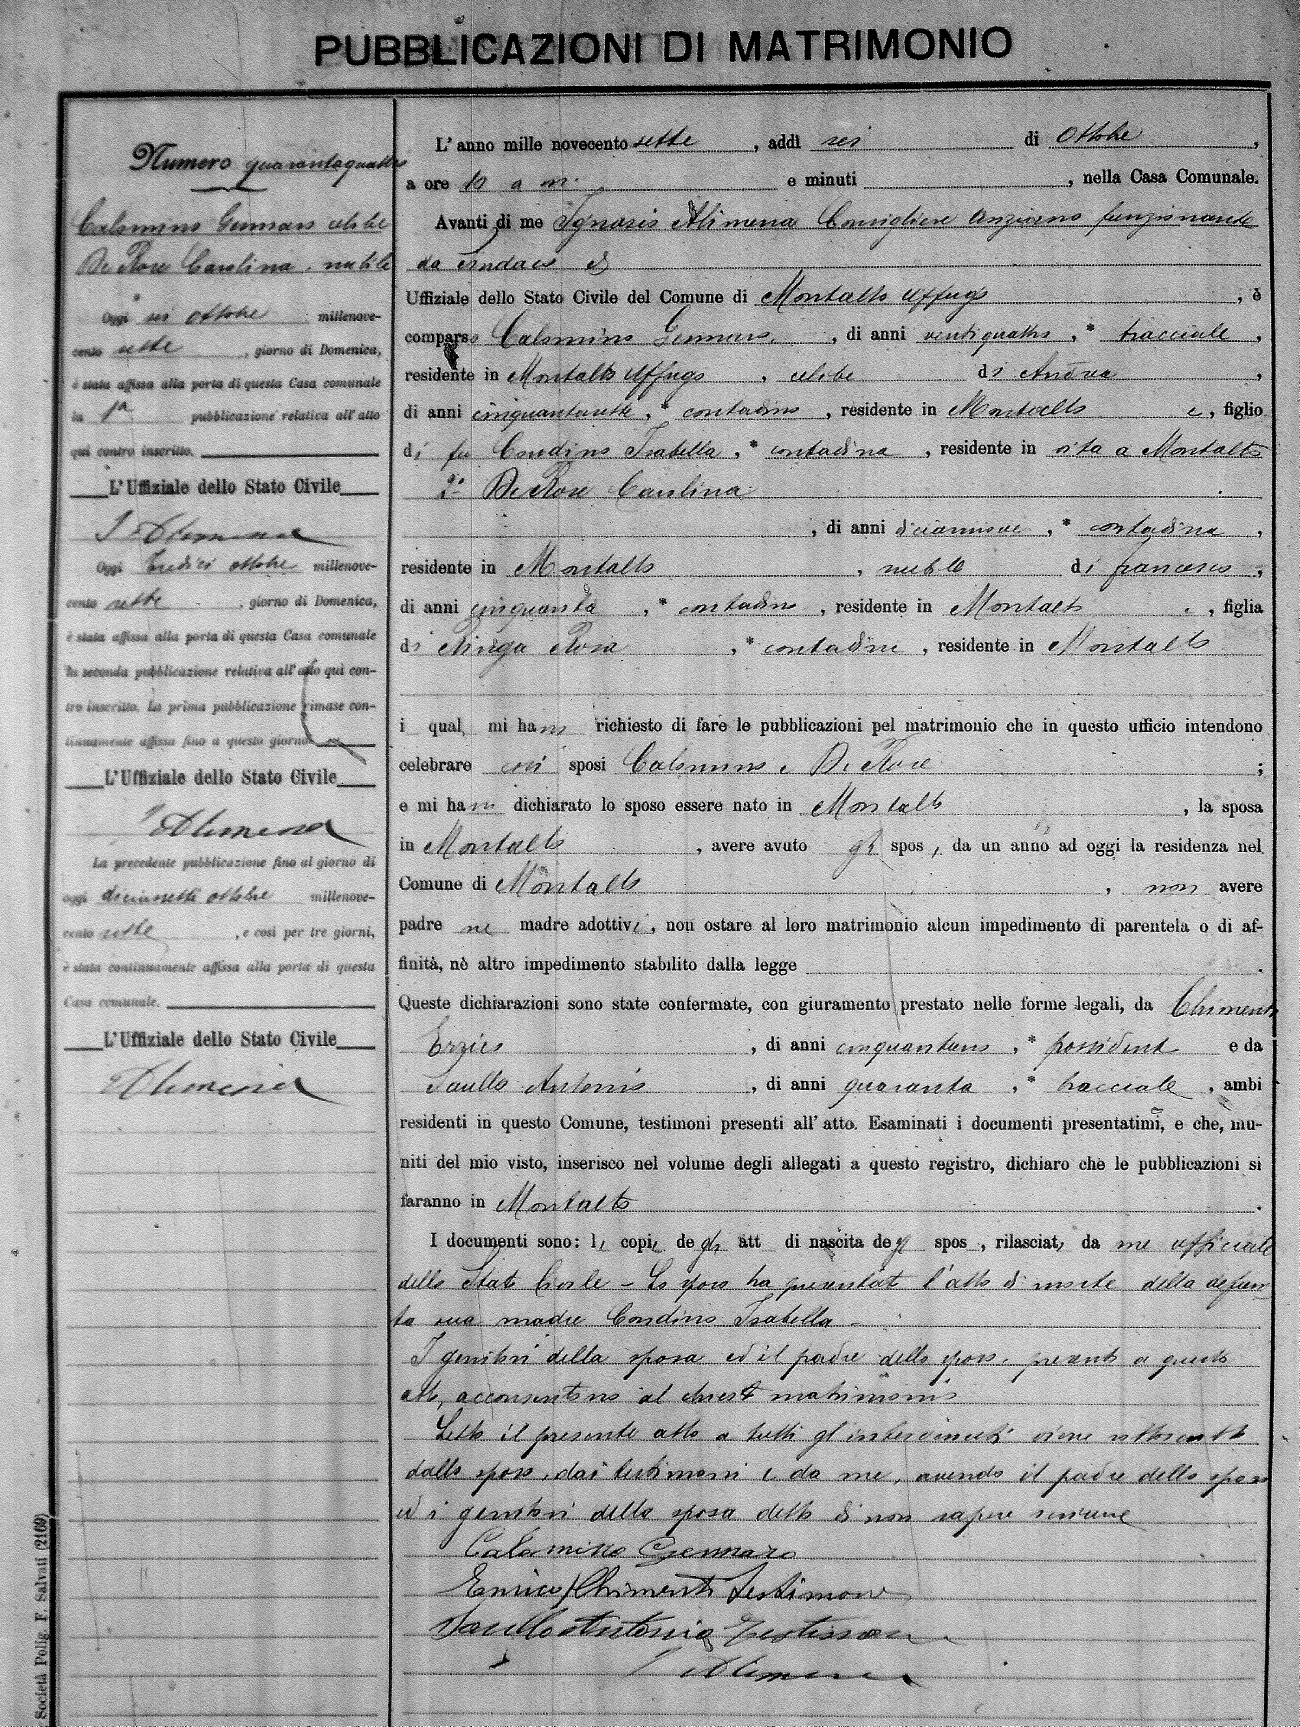 PUBBLICAZIONI DI MATRIMONIO
Numero quarantaquattro
Calomino Gennaro celibe
De Rose Carolina, nubile
Oggi sei ottobre millenove-
cento sette, giorno di Domenica,
è stata affissa alla porta di questa Casa comunale
la 1ª pubblicazione relativa all'atto
qui contro inscritto.
L'Uffiziale dello Stato Civile
I. Alimena
Oggi tredici ottobre millenove-
cento sette, giorno di Domenica,
è stata affissa alla porta di questa Casa comunale
la seconda pubblicazione relativa all'atto qui con-
tro inscritto. La prima pubblicazione rimase con-
tinuamente affissa fino a questo giorno
L'Uffiziale dello Stato Civile
I Alimena
La precedente pubblicazione fino al giorno di
oggi diciassette ottobre millenove-
cento sette, e così per tre giorni,
è stata continuamente affissa alla porta di questa
Casa comunale.
L'Uffiziale dello Stato Civile
I Alimena
L'anno mille novecento sette, addì sei di Ottobre,
a ore 10 a m. e minuti , nella Casa Comunale.
Avanti di me Ignazio Alimena Consigliere anziano funzionante
da sindaco ed
Uffiziale dello Stato Civile del Comune di Montalto Uffugo, è
comparso Calomino Gennaro, di anni ventiquattro, * bracciale,
residente in Montalto Uffugo, celibe di Andrea,
di anni, * contadino, residente in Montalto e, figlio
di fu Condino Isabella, * contadina, residente in vita a Montalto
2° De Rose Carolina
, di anni diciannove, * contadina,
residente in Montalto, nubile di Francesco,
di anni cinquanta, * contadino, residente in Montalto e, figlia
di Rosa, * contadina, residente in Montalto
i qual, mi hanno richiesto di fare le pubblicazioni pel matrimonio che in questo ufficio intendono
celebrare essi sposi Calomino e De Rose ;
e mi hanno dichiarato lo sposo essere nato in Montalto, la sposa
in Montalto, avere avuto gli spos, da un anno ad oggi la residenza nel
Comune di Montalto, non avere
padre ne madre adottivi, non ostare al loro matrimonio alcun impedimento di parentela o di af-
finità, nè altro impedimento stabilito dalla legge .
Queste dichiarazioni sono state confermate, con giuramento prestato nelle forme legali, da Chimenti
Enrico, di anni cinquantuno, * possidente e da
Saullo Antonio, di anni quaranta, * bracciale, ambi
residenti in questo Comune, testimoni presenti all'atto. Esaminati i documenti presentatimi, e che, mu-
niti del mio visto, inserisco nel volume degli allegati a questo registro, dichiaro che le pubblicazioni si
faranno in Montalto.
I documenti sono: le copie degli att di nascita degl spos, rilasciate da me officiale
dello Stato Civile - Lo sposo ha presentato l'atto di morte della defun-
ta sua madre Condino Isabella -
I genitori della sposa ed il padre dello sposo, presenti a questo
atto, acconsentono al chiesto matrimonio
Letto il presente atto a tutti gl'intervenuti viene sottoscritto
dallo sposo, dai testimoni e da me, avendo il padre dello sposo
ed i genitori della sposa detto di non sapere scrivere
Calomino Gennaro
Enrico Chimenti testimone
Saullo Antonio Testimone
I Alimena
Società Polig. F. Salvati (2169)